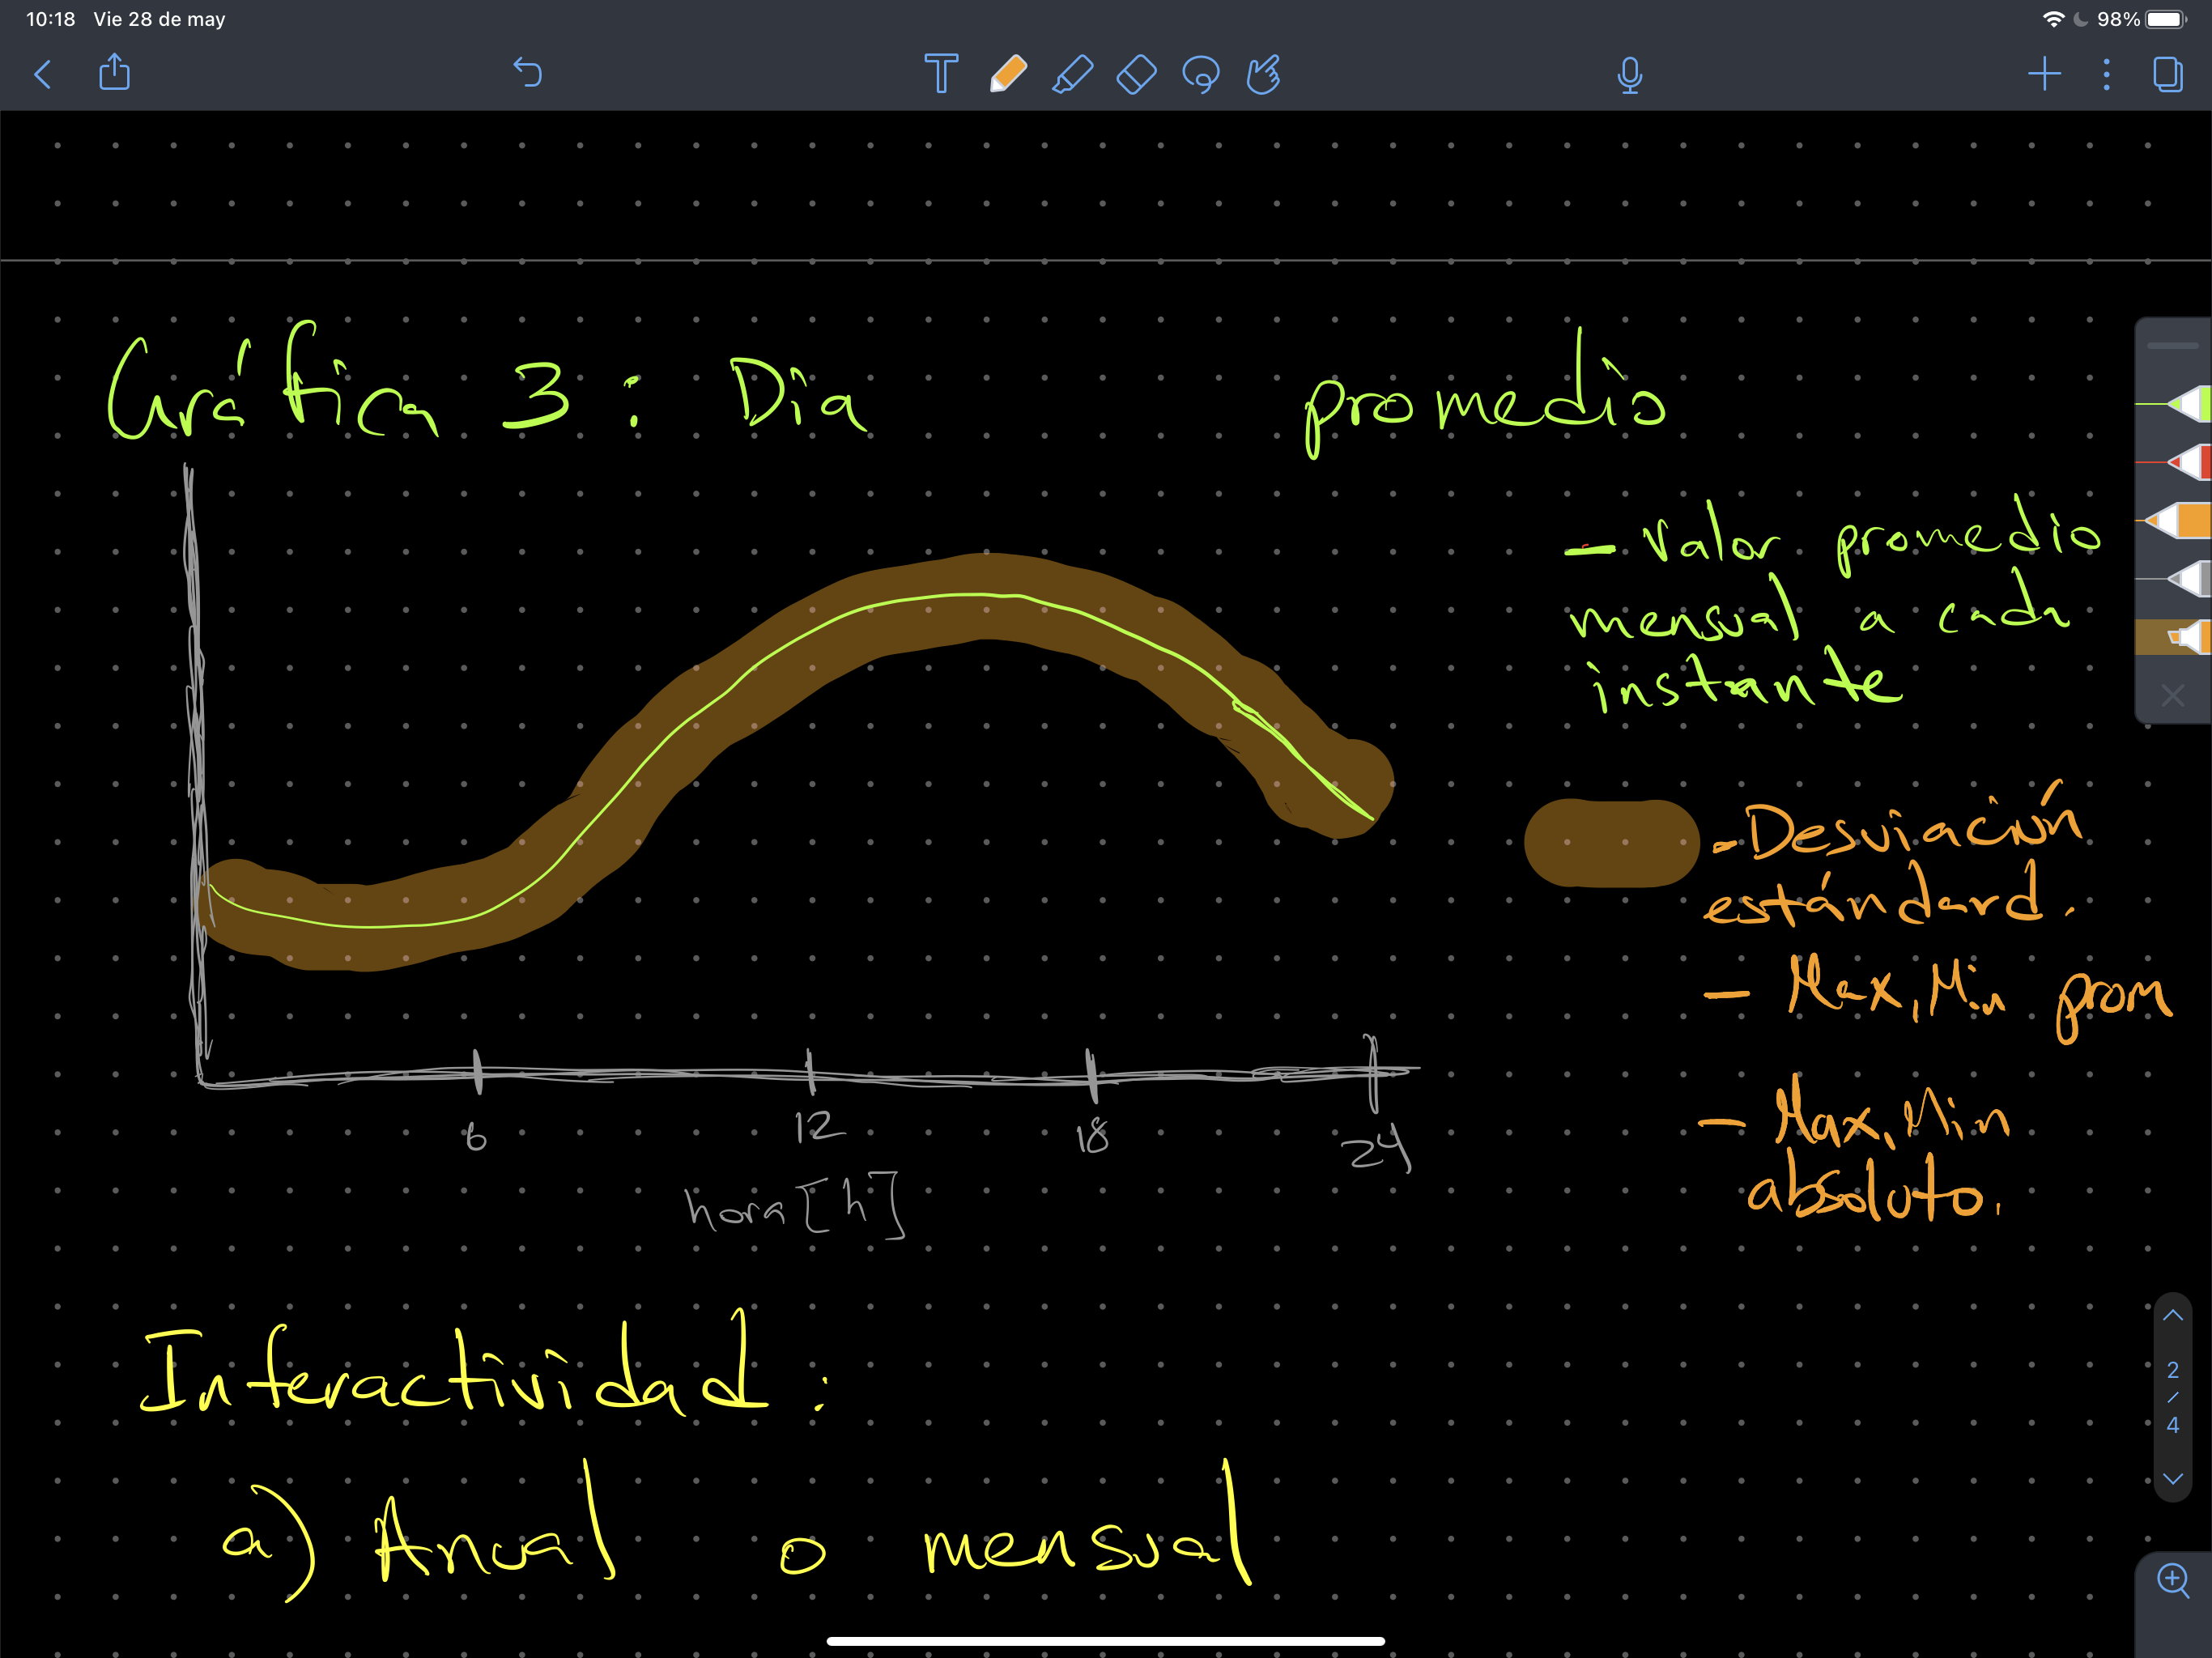 10:18 Vie 28 de may
98%
Gráfica 3: Dia promedio
- Valor promedio
mensual a cada
instante
- Desviación
estándard.
- Max, Min prom
- Max, Min
absoluto.
6 12 18 24
hora [h]
Interactividad:
a) Anual o mensual
2
/
4